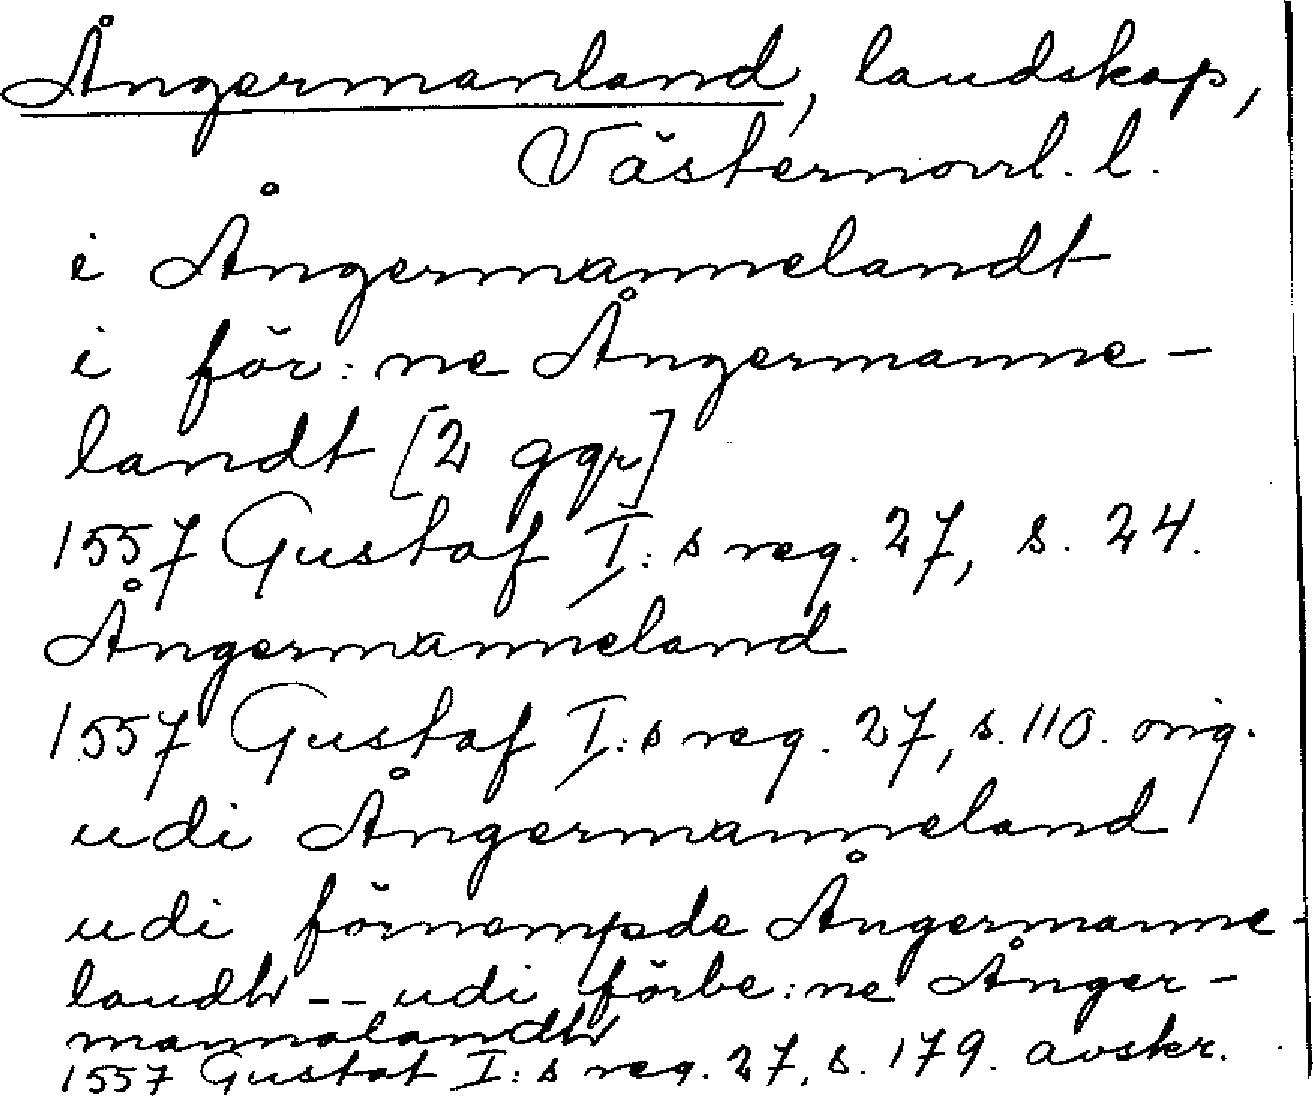 Ångermanland, landskap,
Västernorrl. l.
i Ångermannelandt
i för:ne Ångermanne-
landt [2 ggr]
1557 Gustaf I:s reg. 27, s. 24.
Ångermanneland
1557 Gustaf I:s reg. 27, s. 110. orig.
udi Ångermanneland
udi förnempde Ångermanne-
landh -- udi förbe:ne Ånger-
mannalandh
1557 Gustaf I:s reg. 27, s. 179. avskr.